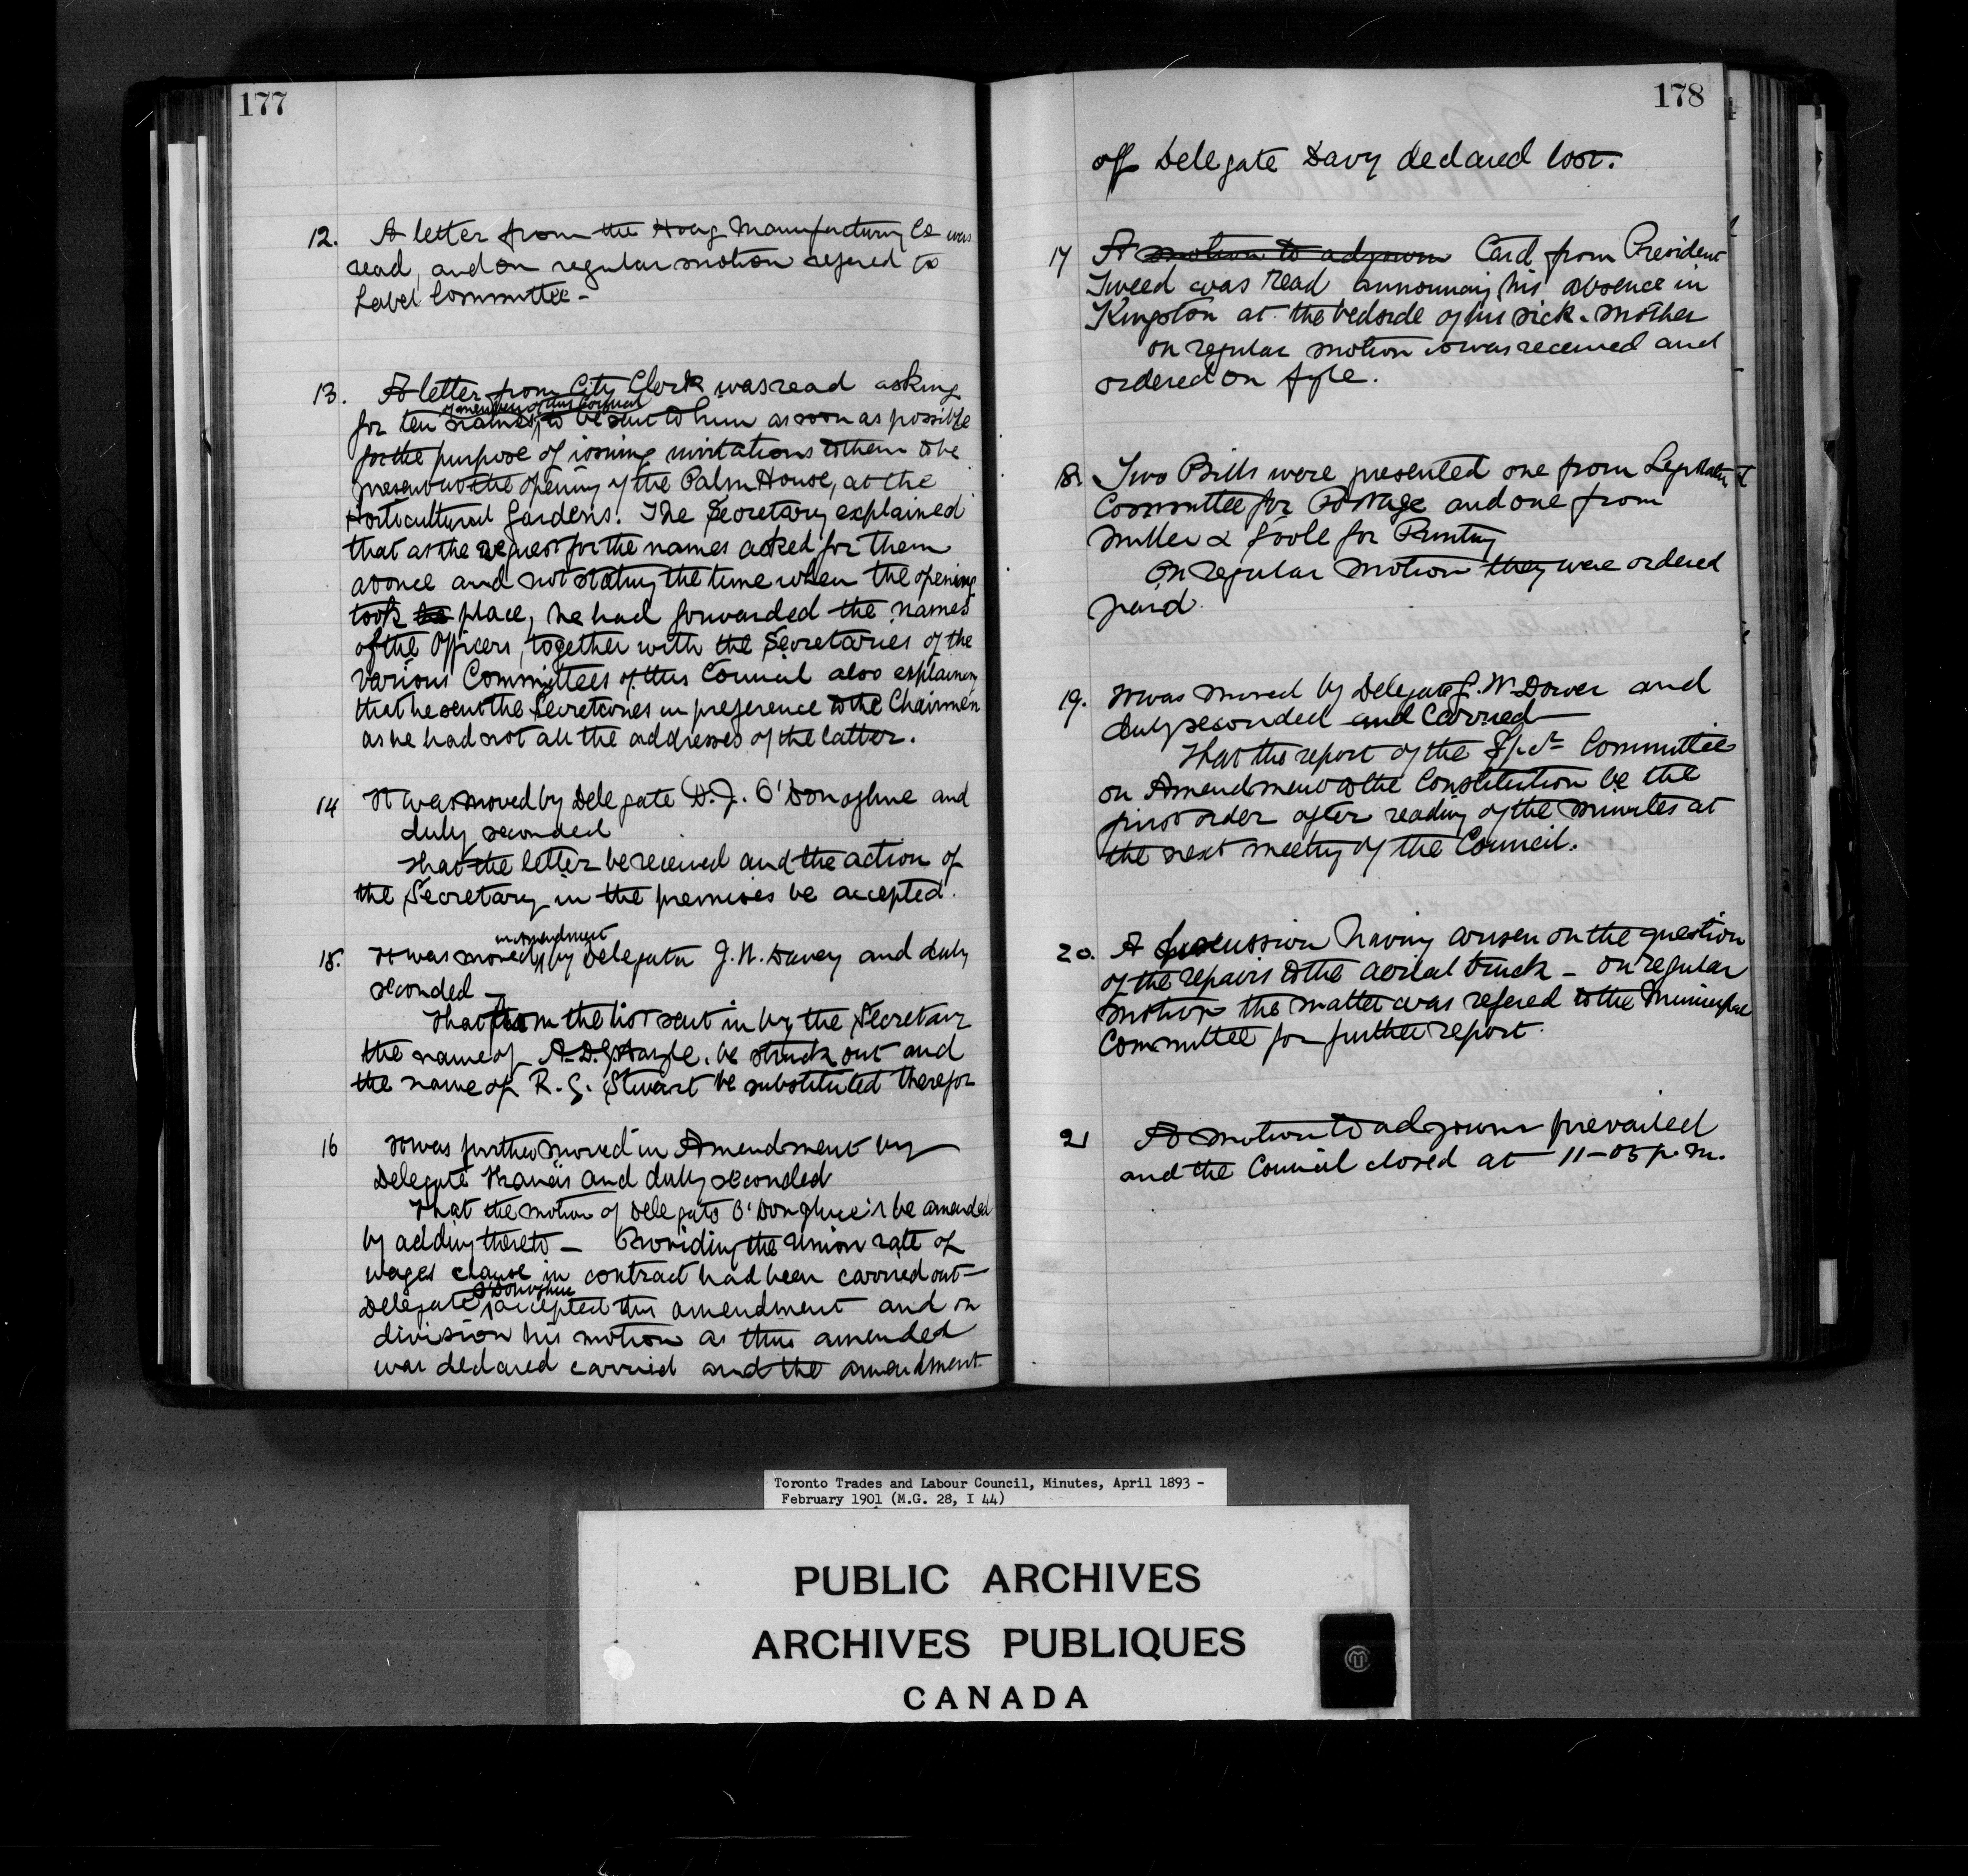 177
12. A letter from the Hoag Manufacturing Co was
read, and on regular motion refered to
Label Committee -
13. A letter from City Clerk was read asking
of members of this Council
for ten names, to be sent to him as soon as possible
for the purpose of issuing invitations to them to be
present at the opening of the Palm House, at the
Horticultural Gardens. The Secretary explained
that as the request for the names asked for them
at once and not stating the time when the opening
took place, he had forwarded the names
of the Officers, together with the Secretaries of the
various Committees of this Council also explaining
that he sent the Secretaries in preference to the Chairmen
as he had not all the addresses of the latter.
14 It was moved by Delegate D.J. O'Donoghue and
duly seconded
That the letter be received and the action of
the Secretary in the premises be accepted.
in Amendment
15. It was moved, by Delegate J. H. Davey and duly
seconded -
That from the list sent in by the Secretary
the name of A. D. be struck out and
the name of R. G. Stewart be substituted therefor
16 It was further moved in Amendment by
Delegate and duly seconded
That the motion of Delegate O'Donoghue's be amended
by adding thereto - Providing the Union rate of
wages clause in contract had been carried out -
O'Donoghue
Delegate accepted this amendment and on
division his motion as thus amended
was declared carried and the amendment
178
off Delegate Davy declared lost.
17 A motion to adjourn Card from President
Tweed was read announcing his absence in
Kingston at the bedside of his sick mother
on regular motion it was received and
ordered on fyle.
18. Two Bills were presented one from Legislative
Committee for Postage and one from
Miller & Soole for Printing
On regular motion they were ordered
paid.
19. It was moved by Delegate J. W. Dower and
duly seconded and Carried
That the report of the Spcl Committee
on Amendment to the Constitution be the
first order after reading of the minutes at
the next meeting of the Council.
20. A discussion having arisen on the question
of the repairs to the aerial truck - on regular
motion the matter was refered to the Municipal
Committee for further report.
21 A motion to adjourn prevailed
and the Council closed at 11-05 p.m.
Toronto Trades and Labour Council, Minutes, April 1893 -
February 1901 (M.G. 28, I 44)
PUBLIC ARCHIVES
ARCHIVES PUBLIQUES
CANADA